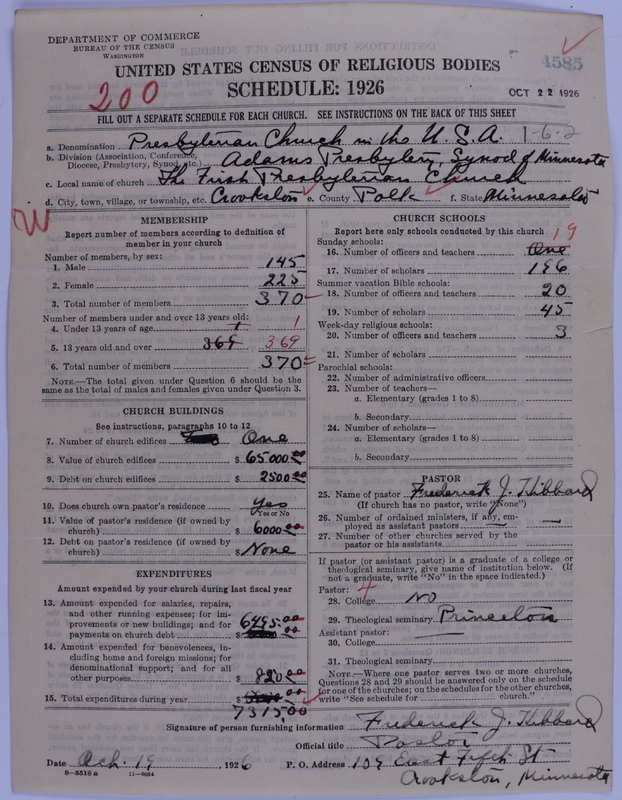 DEPARTMENT OF COMMERCE
BUREAU OF THE CENSUS
WASHINGTON
4585
UNITED STATES CENSUS OF RELIGIOUS BODIES
200
SCHEDULE: 1926
OCT 22 1926
FILL OUT A SEPARATE SCHEDULE FOR EACH CHURCH. SEE INSTRUCTIONS ON THE BACK OF THIS SHEET
a. Denomination Presbyterian Church in the U.S.A. 1-6-2
b. Division (Association, Conference, Diocese, Presbytery, Synod, etc.) Adams Presbytery, Synod of Minnesota
c. Local name of church The First Presbyterian Church
d. City, town, village, or township, etc. Crookston e. County Polk f. State Minnesota
W
MEMBERSHIP
Report number of members according to definition of
member in your church
Number of members, by sex:
1. Male 145
2. Female 225
3. Total number of members 370
Number of members under and over 13 years old:
4. Under 13 years of age 1 1
5. 13 years old and over 369 369
6. Total number of members 370
NOTE.—The total given under Question 6 should be the
same as the total of males and females given under Question 3.
CHURCH BUILDINGS
See instructions, paragraphs 10 to 12
7. Number of church edifices One
8. Value of church edifices $ 65000.00
9. Debt on church edifices $ 2500.00
10. Does church own pastor's residence Yes
Yes or No
11. Value of pastor's residence (if owned by
church) $ 6000.00
12. Debt on pastor's residence (if owned by
church) $ None
EXPENDITURES
Amount expended by your church during last fiscal year
13. Amount expended for salaries, repairs,
and other running expenses; for im-
provements or new buildings; and for
payments on church debt $ 6495.00
14. Amount expended for benevolences, in-
cluding home and foreign missions; for
denominational support; and for all
other purposes $ 820.00
15. Total expenditures during year $
7315.00
CHURCH SCHOOLS
Report here only schools conducted by this church
Sunday schools: 19
16. Number of officers and teachers One
17. Number of scholars 196
Summer vacation Bible schools:
18. Number of officers and teachers 20
19. Number of scholars 45
Week-day religious schools:
20. Number of officers and teachers 3
21. Number of scholars
Parochial schools:
22. Number of administrative officers
23. Number of teachers—
a. Elementary (grades 1 to 8)
b. Secondary
24. Number of scholars—
a. Elementary (grades 1 to 8)
b. Secondary
PASTOR
25. Name of pastor Frederick J. Hibbard
(If church has no pastor, write "None")
26. Number of ordained ministers, if any, em-
ployed as assistant pastors —
27. Number of other churches served by the
pastor or his assistants
If pastor (or assistant pastor) is a graduate of a college or
theological seminary, give name of institution below. (If
not a graduate, write "No" in the space indicated.)
Pastor: 4
28. College No
29. Theological seminary Princeton
Assistant pastor:
30. College
31. Theological seminary
NOTE.—Where one pastor serves two or more churches,
Questions 28 and 29 should be answered only on the schedule
for one of the churches; on the schedules for the other churches,
write "See schedule for church."
Signature of person furnishing information Frederick J. Hibbard
Official title Pastor
Date Oct. 19, 1926 P. O. Address 109 East Fifth St
Crookston, Minnesota
8-5518 a 11-9054